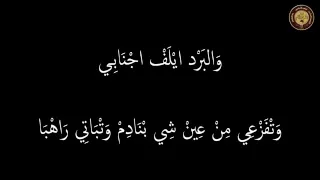 وَالبَرْد ايْلَفْ اجْنَابِي
وَتْفَزْعِي مِنْ عِينْ شِي بْنَادِمْ وَتْبَاتِي رَاهْبَا